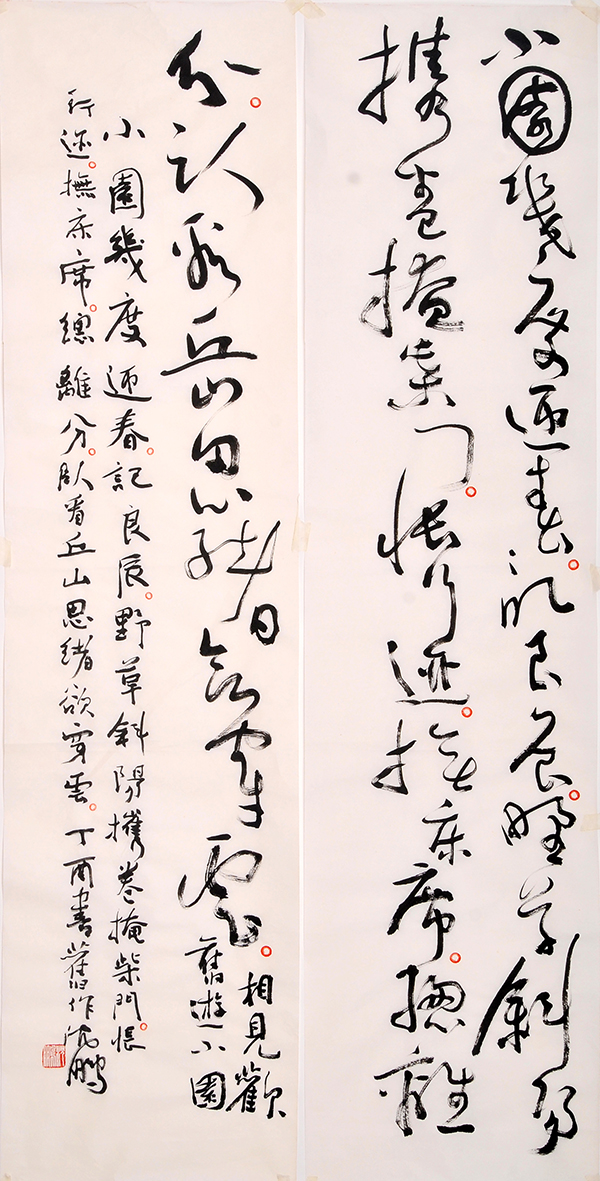 小園幾度迎春。記良辰。野草斜陽
攜卷掩柴門。悵行迹。撫床席。總離
分。臥看丘山思緒欲穿雲。
相見歡
舊遊小園
小園幾度迎春。記良辰。野草斜陽攜卷掩柴門。悵
行迹。撫床席。總離分。臥看丘山思緒欲穿雲。丁酉書舊作沈鵬